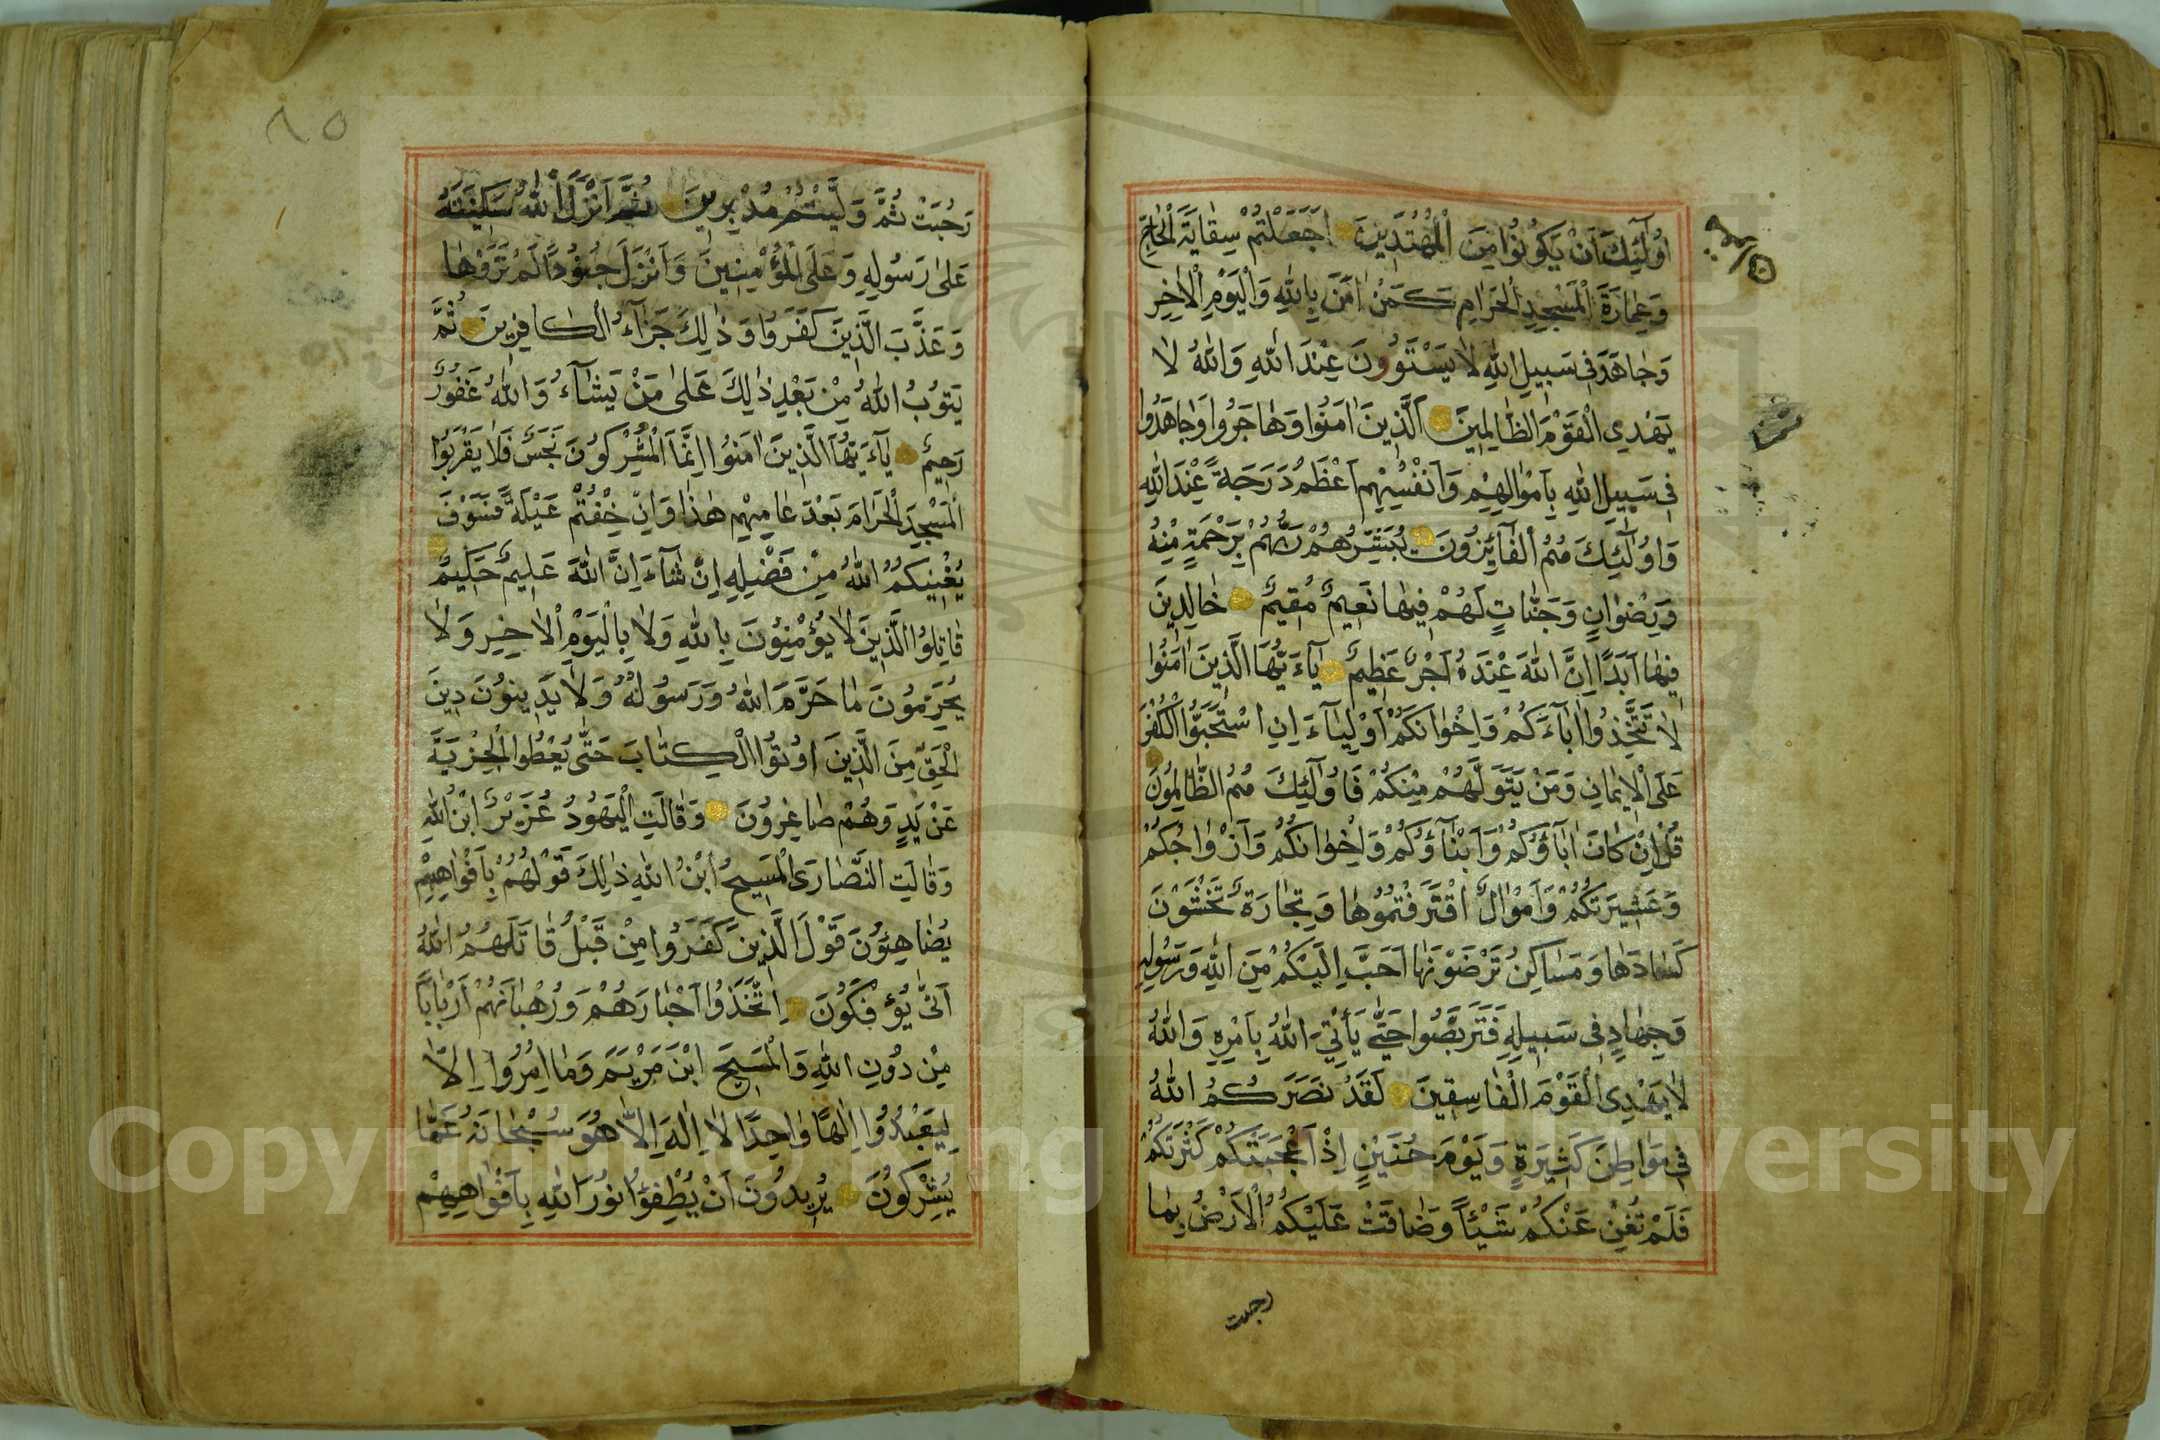 اُولٰٓئِكَ اَنْ يَكُونُوا مِنَ الْمُهْتَدِينَ اَجَعَلْتُمْ سِقَايَةَ الْحَاجِّ
وَعِمَارَةَ الْمَسْجِدِ الْحَرَامِ كَمَنْ اٰمَنَ بِاللّٰهِ وَالْيَوْمِ الْاٰخِرِ
وَجَاهَدَ فِى سَبِيلِ اللّٰهِ لَا يَسْتَوُونَ عِنْدَ اللّٰهِ وَاللّٰهُ لَا
يَهْدِى الْقَوْمَ الظَّالِمِينَ اَلَّذِينَ اٰمَنُوا وَهَاجَرُوا وَجَاهَدُوا
فِى سَبِيلِ اللّٰهِ بِاَمْوَالِهِمْ وَاَنْفُسِهِمْ اَعْظَمُ دَرَجَةً عِنْدَ اللّٰهِ
وَاُولٰٓئِكَ هُمُ الْفَآئِزُونَ يُبَشِّرُهُمْ رَبُّهُمْ بِرَحْمَةٍ مِنْهُ
وَرِضْوَانٍ وَجَنَّاتٍ لَهُمْ فِيهَا نَعِيمٌ مُقِيمٌ خَالِدِينَ
فِيهَا اَبَدًا اِنَّ اللّٰهَ عِنْدَهُ اَجْرٌ عَظِيمٌ يَآءَيُّهَا الَّذِينَ اٰمَنُوا
لَا تَتَّخِذُوا اٰبَآءَكُمْ وَاِخْوَانَكُمْ اَوْلِيَآءَ اِنِ اسْتَحَبُّوا الْكُفْرَ
عَلَى الْاِيمَانِ وَمَنْ يَتَوَلَّهُمْ مِنْكُمْ فَاُولٰٓئِكَ هُمُ الظَّالِمُونَ
قُلْ اِنْ كَانَ اٰبَآؤُكُمْ وَاَبْنَآؤُكُمْ وَاِخْوَانُكُمْ وَاَزْوَاجُكُمْ
وَعَشِيرَتُكُمْ وَاَمْوَالٌ اقْتَرَفْتُمُوهَا وَتِجَارَةٌ تَخْشَوْنَ
كَسَادَهَا وَمَسَاكِنُ تَرْضَوْنَهَا اَحَبَّ اِلَيْكُمْ مِنَ اللّٰهِ وَرَسُولِهِ
وَجِهَادٍ فِى سَبِيلِهِ فَتَرَبَّصُوا حَتَّى يَأْتِىَ اللّٰهُ بِاَمْرِهِ وَاللّٰهُ
لَا يَهْدِى الْقَوْمَ الْفَاسِقِينَ لَقَدْ نَصَرَكُمُ اللّٰهُ
فِى مَوَاطِنَ كَثِيرَةٍ وَيَوْمَ حُنَيْنٍ اِذْ اَعْجَبَتْكُمْ كَثْرَتُكُمْ
فَلَمْ تُغْنِ عَنْكُمْ شَيْئًا وَضَاقَتْ عَلَيْكُمُ الْاَرْضُ بِمَا
رحبت
٨٥
رَحُبَتْ ثُمَّ وَلَّيْتُمْ مُدْبِرِينَ ثُمَّ اَنْزَلَ اللّٰهُ سَكِينَتَهُ
عَلٰى رَسُولِهِ وَعَلَى الْمُؤْمِنِينَ وَاَنْزَلَ جُنُودًا لَمْ تَرَوْهَا
وَعَذَّبَ الَّذِينَ كَفَرُوا وَذٰلِكَ جَزَآءُ الْكَافِرِينَ ثُمَّ
يَتُوبُ اللّٰهُ مِنْ بَعْدِ ذٰلِكَ عَلٰى مَنْ يَشَآءُ وَاللّٰهُ غَفُورٌ
رَحِيمٌ يَآءَيُّهَا الَّذِينَ اٰمَنُوا اِنَّمَا الْمُشْرِكُونَ نَجَسٌ فَلَا يَقْرَبُوا
الْمَسْجِدَ الْحَرَامَ بَعْدَ عَامِهِمْ هٰذَا وَاِنْ خِفْتُمْ عَيْلَةً فَسَوْفَ
يُغْنِيكُمُ اللّٰهُ مِنْ فَضْلِهِ اِنْ شَآءَ اِنَّ اللّٰهَ عَلِيمٌ حَكِيمٌ
قَاتِلُوا الَّذِينَ لَا يُؤْمِنُونَ بِاللّٰهِ وَلَا بِالْيَوْمِ الْاٰخِرِ وَلَا
يُحَرِّمُونَ مَا حَرَّمَ اللّٰهُ وَرَسُولُهُ وَلَا يَدِينُونَ دِينَ
الْحَقِّ مِنَ الَّذِينَ اُوتُوا الْكِتَابَ حَتَّى يُعْطُوا الْجِزْيَةَ
عَنْ يَدٍ وَهُمْ صَاغِرُونَ وَقَالَتِ الْيَهُودُ عُزَيْرٌ ابْنُ اللّٰهِ
وَقَالَتِ النَّصَارَى الْمَسِيحُ ابْنُ اللّٰهِ ذٰلِكَ قَوْلُهُمْ بِاَفْوَاهِهِمْ
يُضَاهِؤُنَ قَوْلَ الَّذِينَ كَفَرُوا مِنْ قَبْلُ قَاتَلَهُمُ اللّٰهُ
اَنّٰى يُؤْفَكُونَ اِتَّخَذُوا اَحْبَارَهُمْ وَرُهْبَانَهُمْ اَرْبَابًا
مِنْ دُونِ اللّٰهِ وَالْمَسِيحَ ابْنَ مَرْيَمَ وَمَا اُمِرُوا اِلَّا
لِيَعْبُدُوا اِلٰهًا وَاحِدًا لَا اِلٰهَ اِلَّا هُوَ سُبْحَانَهُ عَمَّا
يُشْرِكُونَ يُرِيدُونَ اَنْ يُطْفِؤُا نُورَ اللّٰهِ بِاَفْوَاهِهِمْ
Copyright © King Saud University